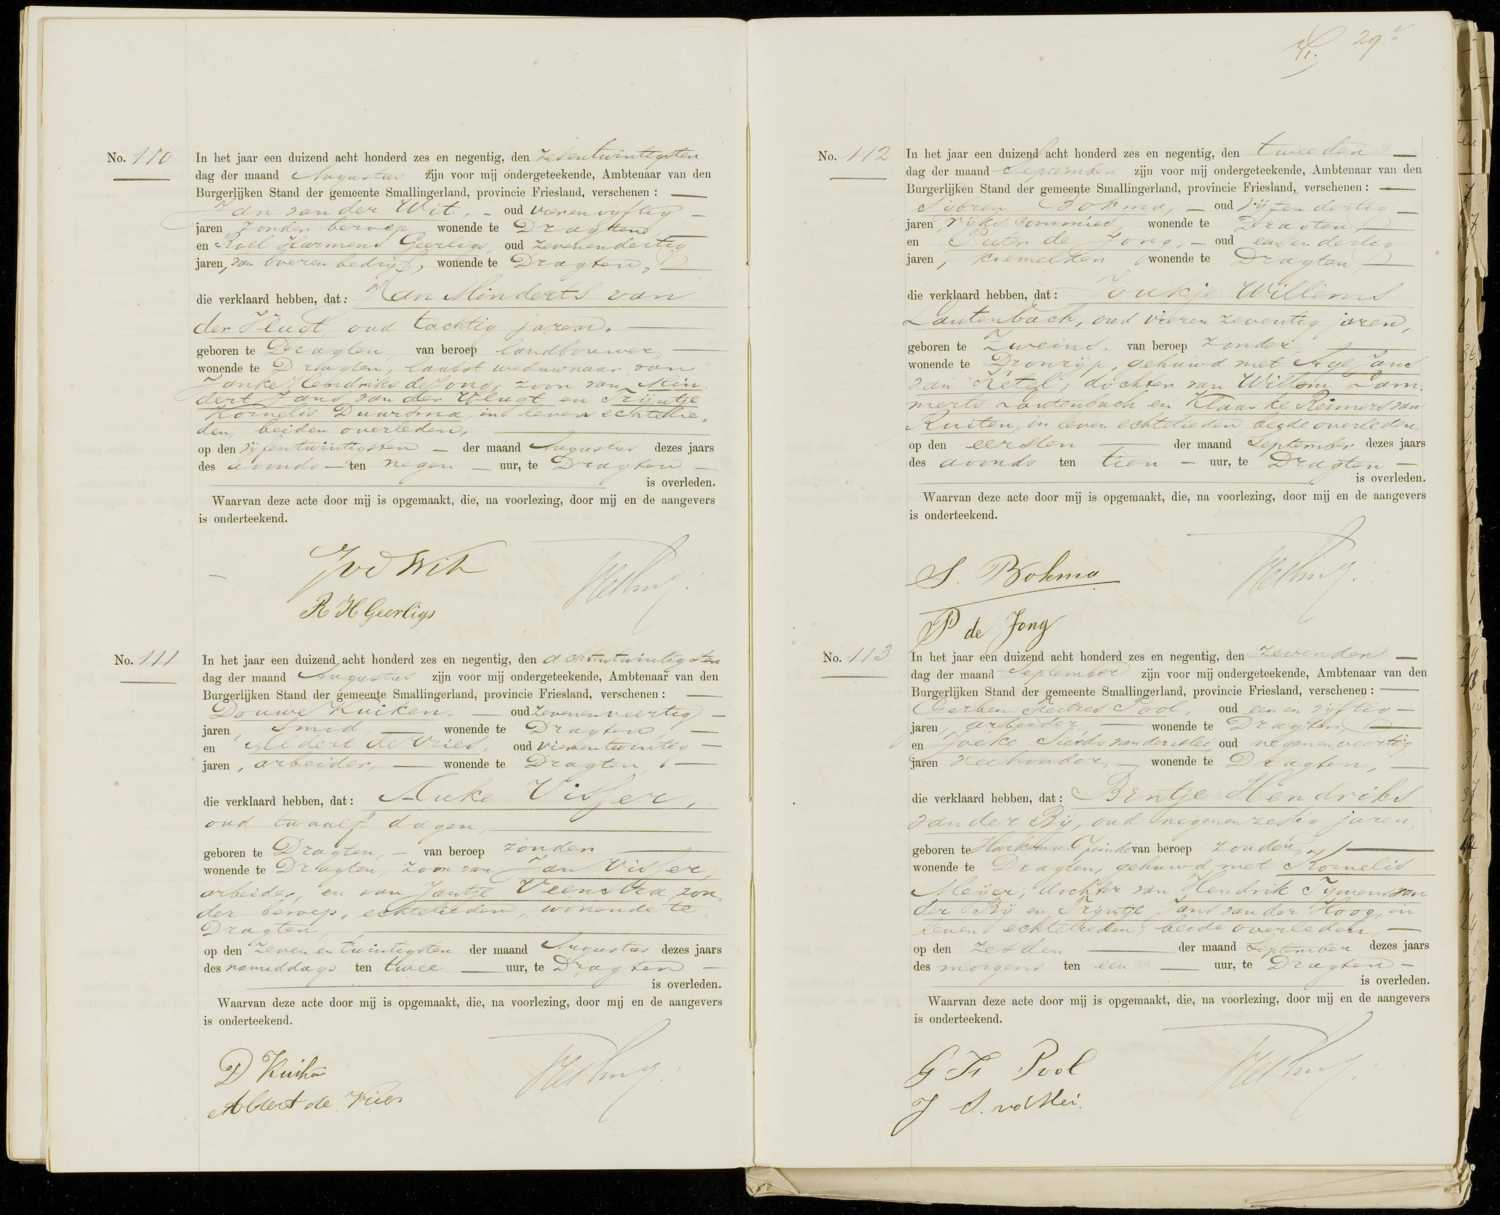 29
No. 110
In het jaar een duizend acht honderd zes en negentig, den zesentwintigsten
dag der maand Augustus zijn voor mij ondergeteekende, Ambtenaar van den
Burgerlijken Stand der gemeente Smallingerland, provincie Friesland, verschenen :
Jan van der Wit, oud vierenvijftig
jaren zonder beroep wonende te Dragten
en Roel Harmens Geerligs, oud zevenendertig
jaren, van boerenbedrijf, wonende te Dragten,
die verklaard hebben, dat : Jan Minderts van
der Vlugt, oud tachtig jaren,
geboren te Dragten, van beroep landbouwer,
wonende te Dragten, laatst weduwnaar van
Janke Hendriks de Jong, zoon van Min
dert Jans van der Vlugt en Trijntje
Kornelis Duursma, in leven echtelie
den, beiden overleden,
op den vijfentwintigsten der maand Augustus dezes jaars
des avonds ten negen uur, te Dragten
is overleden.
Waarvan deze acte door mij is opgemaakt, die, na voorlezing, door mij en de aangevers
is onderteekend.
JvdWit
R H Geerligs
No. 111
In het jaar een duizend acht honderd zes en negentig, den achtentwintigsten
dag der maand Augustus zijn voor mij ondergeteekende, Ambtenaar van den
Burgerlijken Stand der gemeente Smallingerland, provincie Friesland, verschenen :
Douwe Kuiken, oud zevenenveertig
jaren, smid, wonende te Dragten,
en Aldert de Vries, oud vierentwintig
jaren, arbeider, wonende te Dragten,
die verklaard hebben, dat : Auke Visser,
oud twaalf dagen,
geboren te Dragten, van beroep zonder
wonende te Dragten, zoon van Jan Visser,
arbeider, en van Jantje Veenstra, zon
der beroep, echtelieden, wonende te
Dragten,
op den zeven en twintigsten der maand Augustus dezes jaars
des namiddags ten twee uur, te Dragten
is overleden.
Waarvan deze acte door mij is opgemaakt, die, na voorlezing, door mij en de aangevers
is onderteekend.
D Kuiken
Aldert de Vries
No. 112
In het jaar een duizend acht honderd zes en negentig, den tweeden
dag der maand September zijn voor mij ondergeteekende, Ambtenaar van den
Burgerlijken Stand der gemeente Smallingerland, provincie Friesland, verschenen :
Sijbren Bokma, oud vijfendertig
jaren rijks kommies, wonende te Dragten,
en Pieter de Jong, oud eenendertig
jaren, wonende te Dragten,
die verklaard hebben, dat : Foukje Willems
Lautenbach, oud vieren zeventig jaren,
geboren te Zweins, van beroep zonder
wonende te Dronrijp, gehuwd met Auke Jans
van Ketel, dochter van Willem Lam
merts Lautenbach en Klaaske Reimers van
Ruiten, in leven echtelieden beide overleden,
op den eersten der maand September dezes jaars
des avonds ten tien uur, te Dragten
is overleden.
Waarvan deze acte door mij is opgemaakt, die, na voorlezing, door mij en de aangevers
is onderteekend.
S. Bokma
P de Jong
No. 113
In het jaar een duizend acht honderd zes en negentig, den zevenden
dag der maand September zijn voor mij ondergeteekende, Ambtenaar van den
Burgerlijken Stand der gemeente Smallingerland, provincie Friesland, verschenen :
Gerben Pool, oud een en vijftig
jaren, arbeider wonende te Dragten,
en van der Mei oud negenenveertig
jaren veehouder, wonende te Dragten,
die verklaard hebben, dat : Bintje Hendriks
van der Bij, oud negenenzestig jaren,
geboren te van beroep zonder,
wonende te Dragten, gehuwd met Kornelis
Meijer, dochter van Hendrik van
der Bij en Trijntje Jans van der Hoog, in
leven echtelieden, beide overleden,
op den zesden der maand September dezes jaars
des morgens ten een uur, te Dragten
is overleden.
Waarvan deze acte door mij is opgemaakt, die, na voorlezing, door mij en de aangevers
is onderteekend.
Pool
J S. vd Mei.